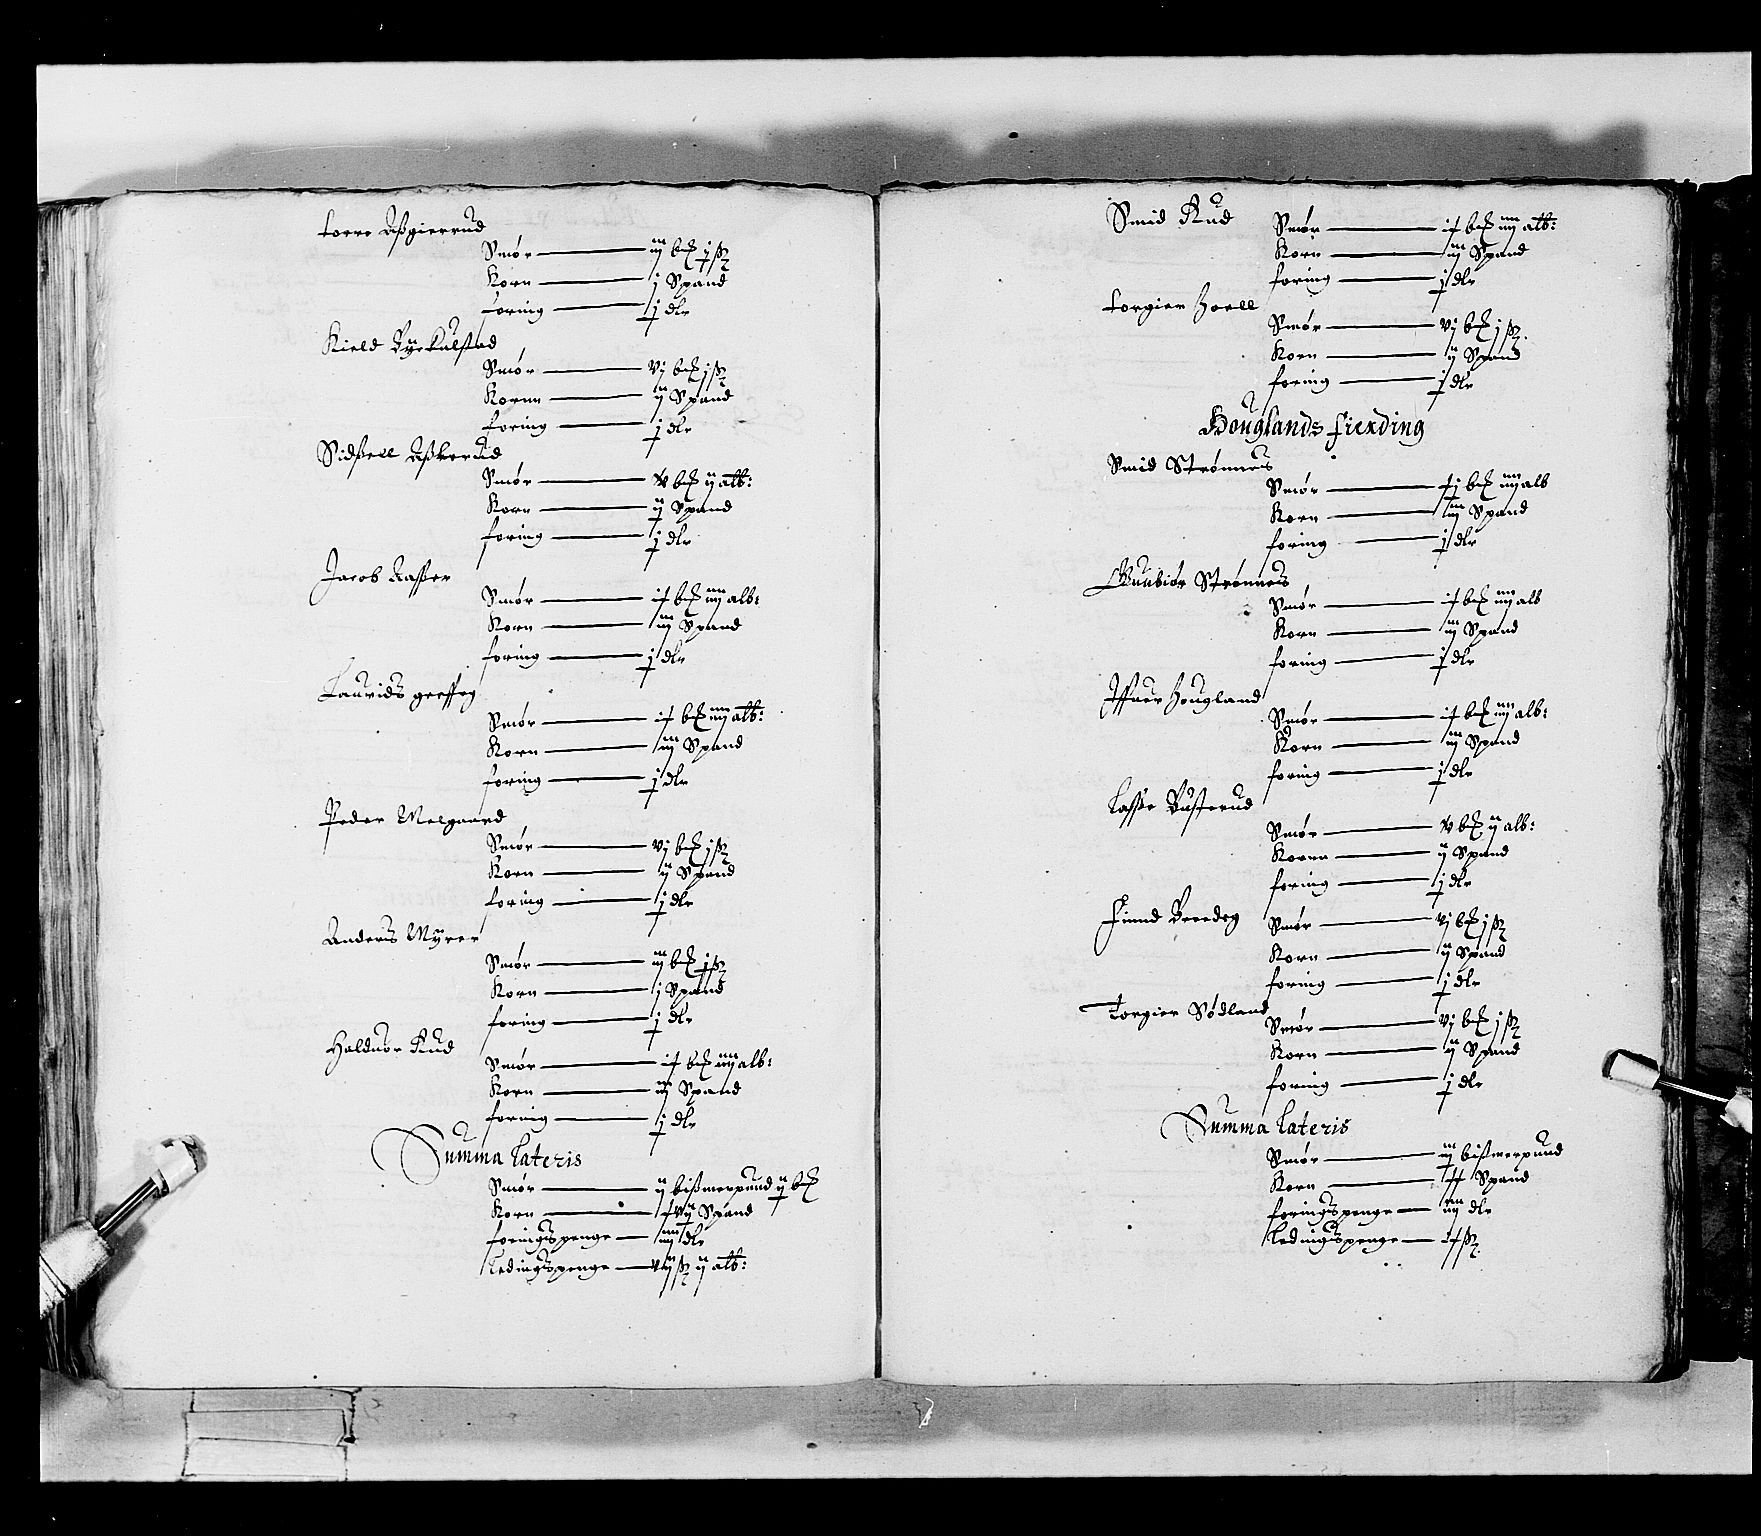 Torre Aßgierrud
Smør — iij b℔ j ß
Korn — j Spand
foring — j dlr
Kield Byekulstad
Smør — vj b℔ j ß
Kornn — ij Spand
foring — j dlr
Sidßell Aßkerud
Smør — v b℔ ij alb:
Korn — ij Spand
foring — j dlr
Jacob Aasser
Smør — ix b℔ iiij alb:
Korn — iij Spand
foring — j dlr
Laurids
Smør — ix b℔ iiij alb:
Korn — iij Spand
foring — j dlr
Peder Melgaard
Smør — vj b℔ j ß
Korn — ij Spand
foring — j dlr
Anders Myrer
Smør — iij b℔ j ß
Korn — j Spand
foring — j dlr
Halduor Rud
Smør — ix b℔ iiij alb:
Korn — iij Spand
foring — j dlr
Summa Lateris
Smør — ij bißmerpund ij b℔
Korn — xvij Spand
foringspenge — iiij dlr
Ledingspenge — vij ß ij alb:
Smid Rud
Smør — ix b℔ iiij alb:
Korn — iij Spand
foring — j dlr
Torgier Hoell
Smør — vj b℔ j ß
Korn — ij Spand
foring — j dlr
Houglands fierding
Smid Strømnes
Smør — xj b℔ iiij alb
Korn — iij Spand
foring — j dlr
Gunbiør Strømnes
Smør — ix b℔ iiij alb
Korn — iij Spand
foring — j dlr
Iffuer Hougland
Smør — ix b℔ iiij alb:
Korn — iij Spand
foring — j dlr
Lasse Busterud
Smør — v b℔ ij alb:
Kornn — ij Spand
foring — j dlr
Finnd
Smør — vj b℔ j ß
Korn — ij Spand
foring — j dlr
Torgier Sødland
Smør — vj b℔ j ß
Korn — ij Spand
foring — j dlr
Summa Lateris
Smør — iij bißmerpund
Korn — xx Spand
foringspenge — iiij dlr
Ledingspenge — ix ß